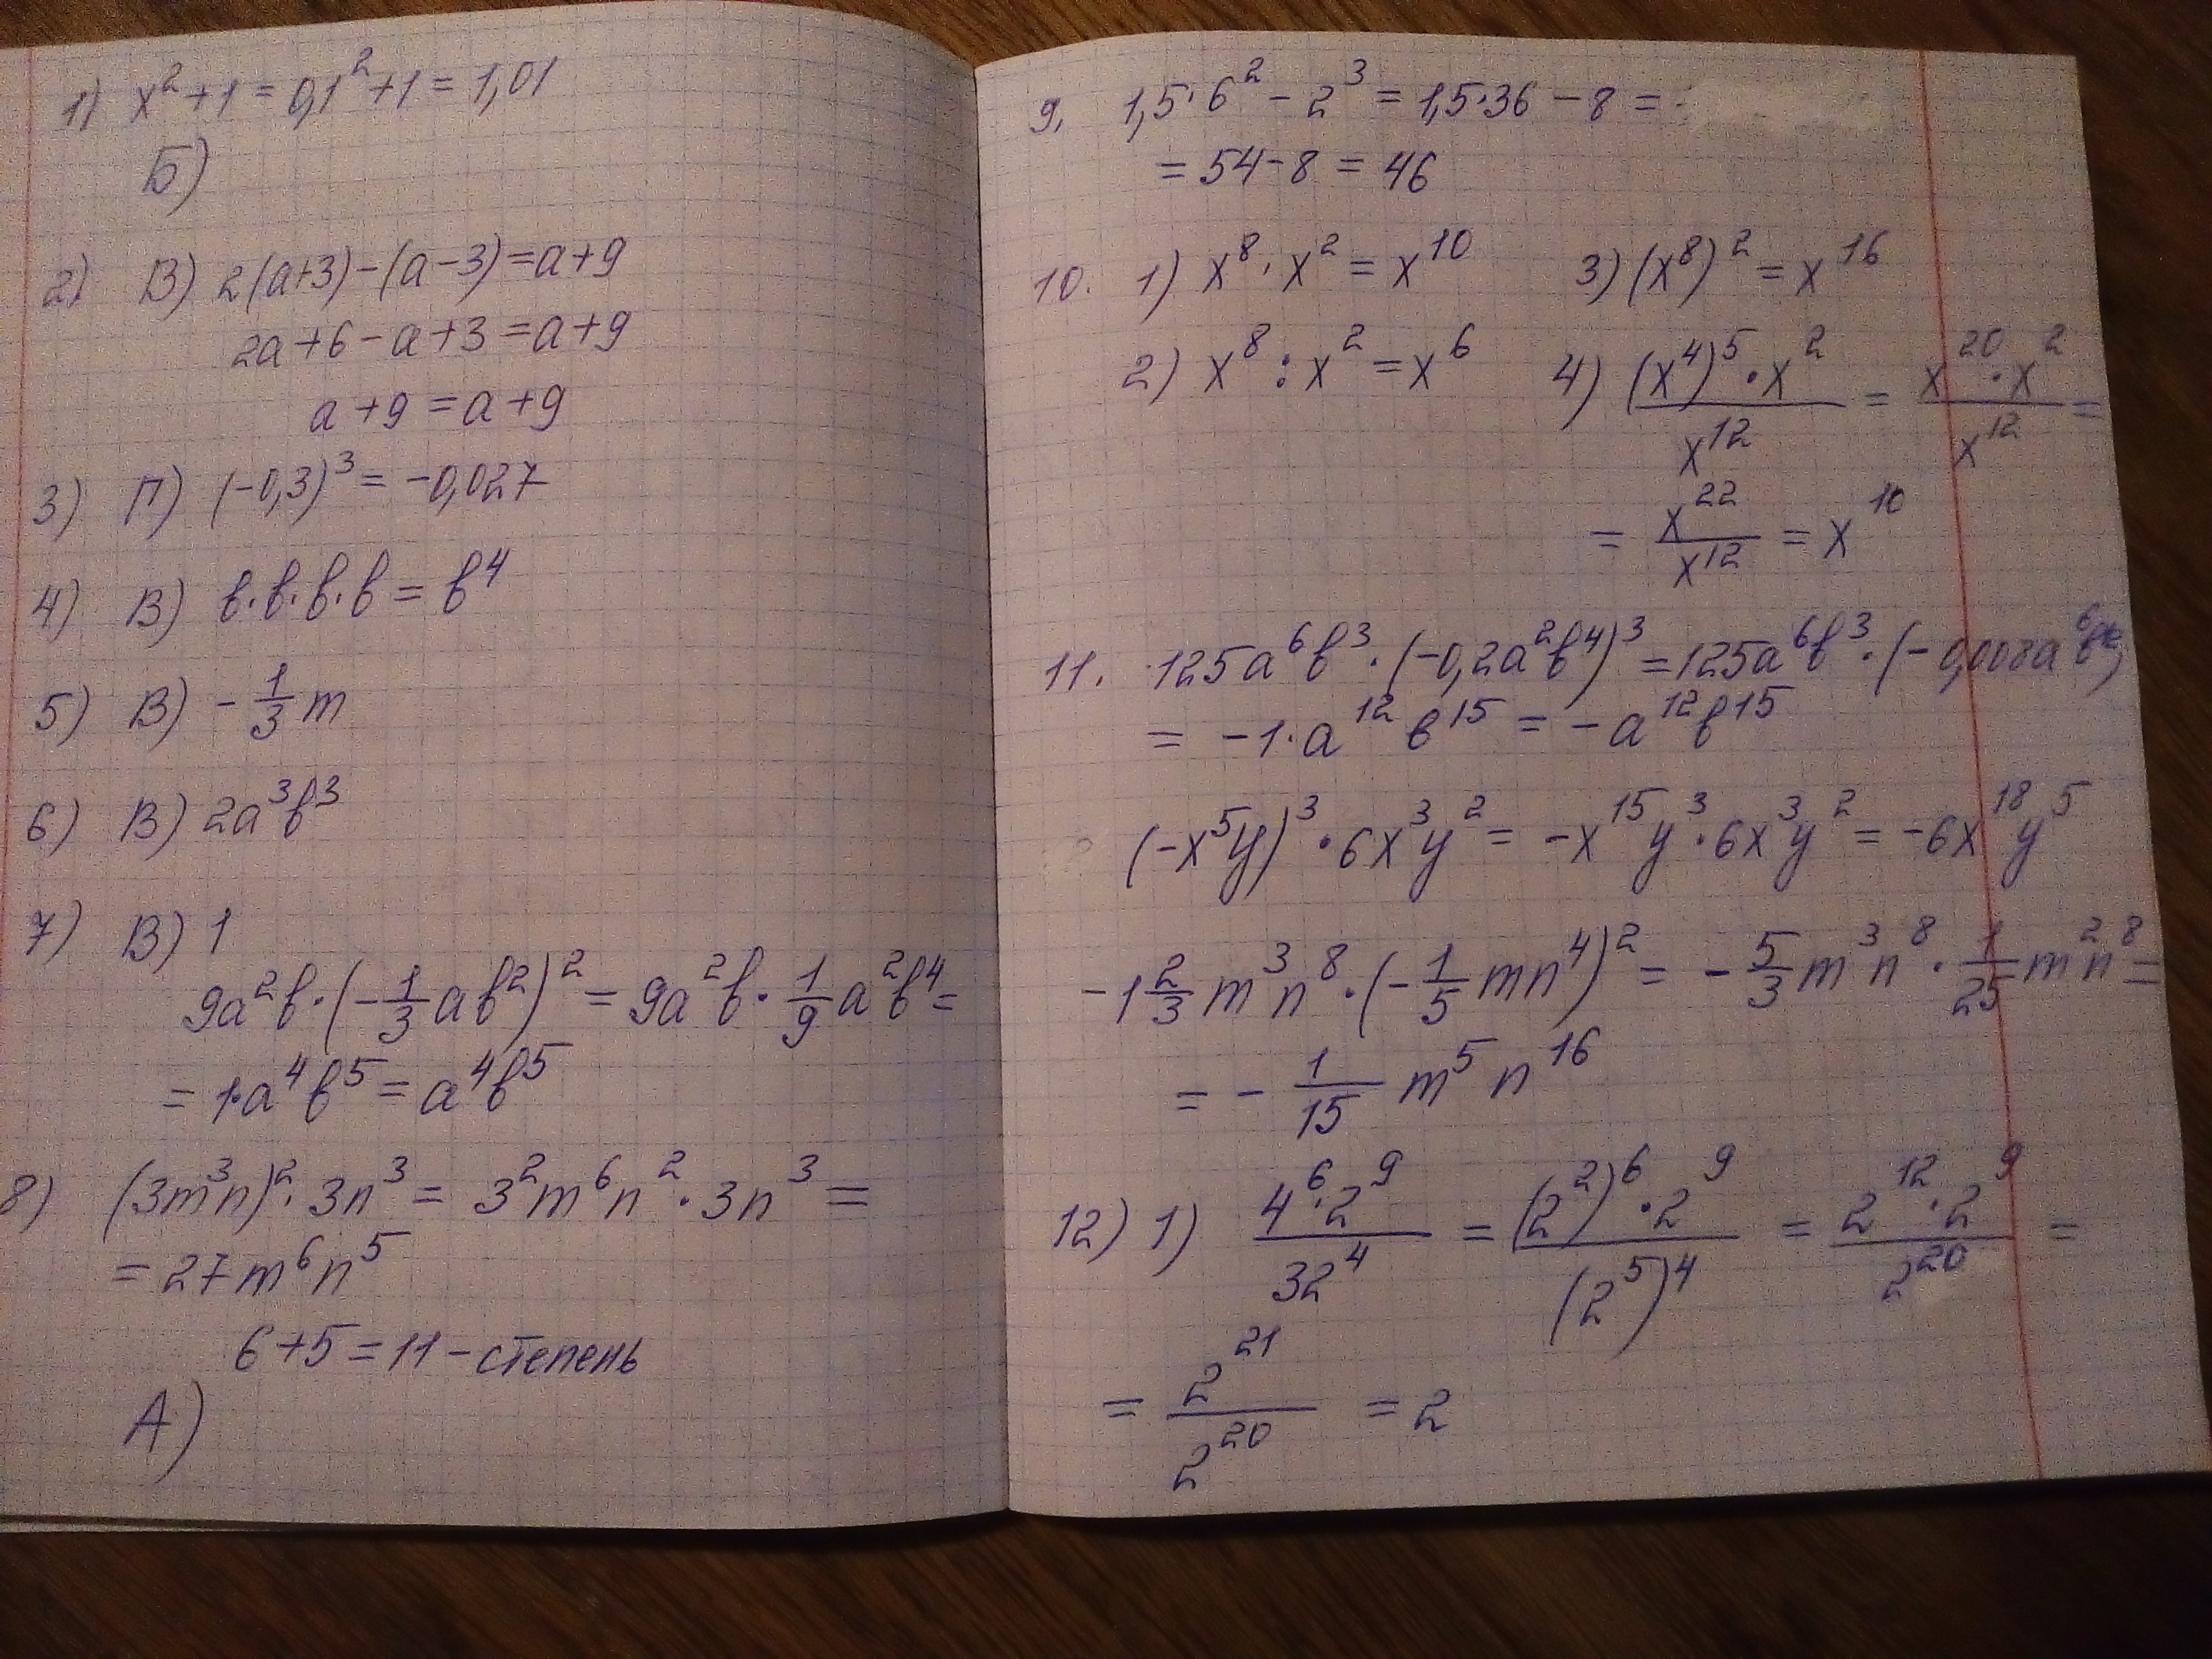 1) x² + 1 = 0,1² + 1 = 1,01
Б)
2) В) 2(a+3) − (a−3) = a+9
2a + 6 − a + 3 = a + 9
a + 9 = a + 9
3) Г) (−0,3)³ = −0,027
4) В) в·в·в·в = в⁴
5) В) − 1/3 m
6) В) 2a³в³
7) В) 1
9a²в · (−1/3 aв²)² = 9a²в · 1/9 a²в⁴ =
= 1·a⁴в⁵ = a⁴в⁵
8) (3m³n)² · 3n³ = 3²m⁶n² · 3n³ =
= 27m⁶n⁵
6 + 5 = 11 − степень
А)
9. 1,5·6² − 2³ = 1,5·36 − 8 =
= 54 − 8 = 46
10. 1) x⁸ · x² = x¹⁰ 3) (x⁸)² = x¹⁶
2) x⁸ : x² = x⁶ 4) (x⁴)⁵ · x² / x¹² = x²⁰ · x² / x¹² =
= x²² / x¹² = x¹⁰
11. 125a⁶в³ · (−0,2a²в⁴)³ = 125a⁶в³ · (−0,008a⁶в¹²)
= −1·a¹²в¹⁵ = −a¹²в¹⁵
(−x⁵y)³ · 6x³y² = −x¹⁵y³ · 6x³y² = −6x¹⁸y⁵
−1 2/3 m³n⁸ · (−1/5 mn⁴)² = −5/3 m³n⁸ · 1/25 m²n⁸ =
= − 1/15 m⁵n¹⁶
12) 1) 4⁶·2⁹ / 32⁴ = (2²)⁶·2⁹ / (2⁵)⁴ = 2¹²·2⁹ / 2²⁰ =
= 2²¹ / 2²⁰ = 2